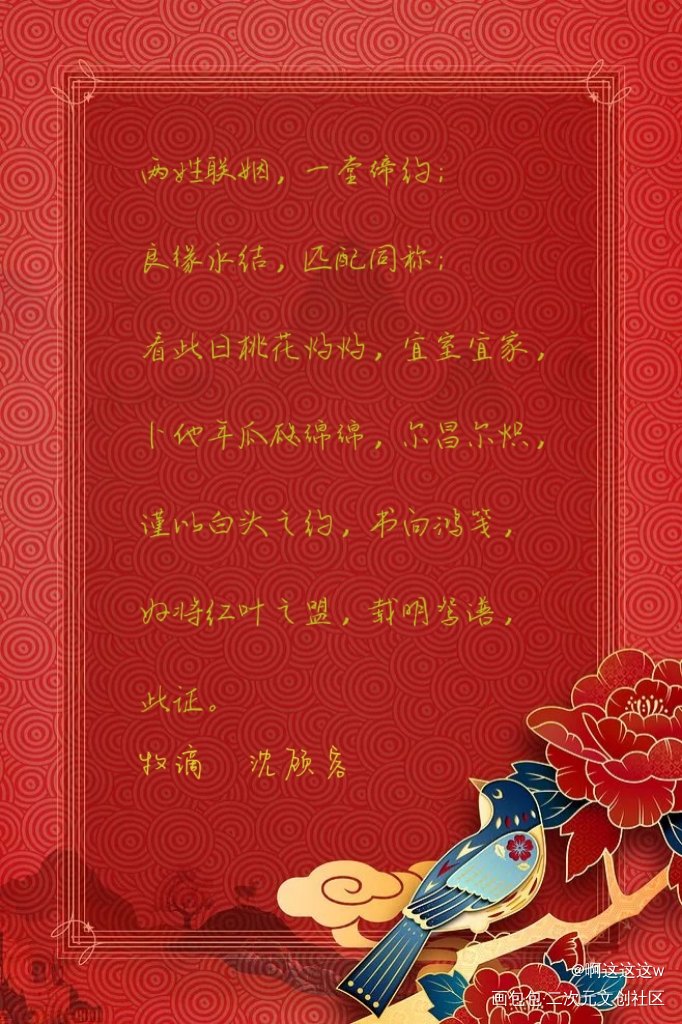 两姓联姻，一堂缔约；
良缘永结，匹配同称；
看此日桃花灼灼，宜室宜家，
卜他年瓜瓞绵绵，尔昌尔炽，
谨以白头之约，书向鸿笺，
好将红叶之盟，载明鸳谱，
此证。
牧滴 沈顾容
@啊这这这w
画包包·二次元文创社区